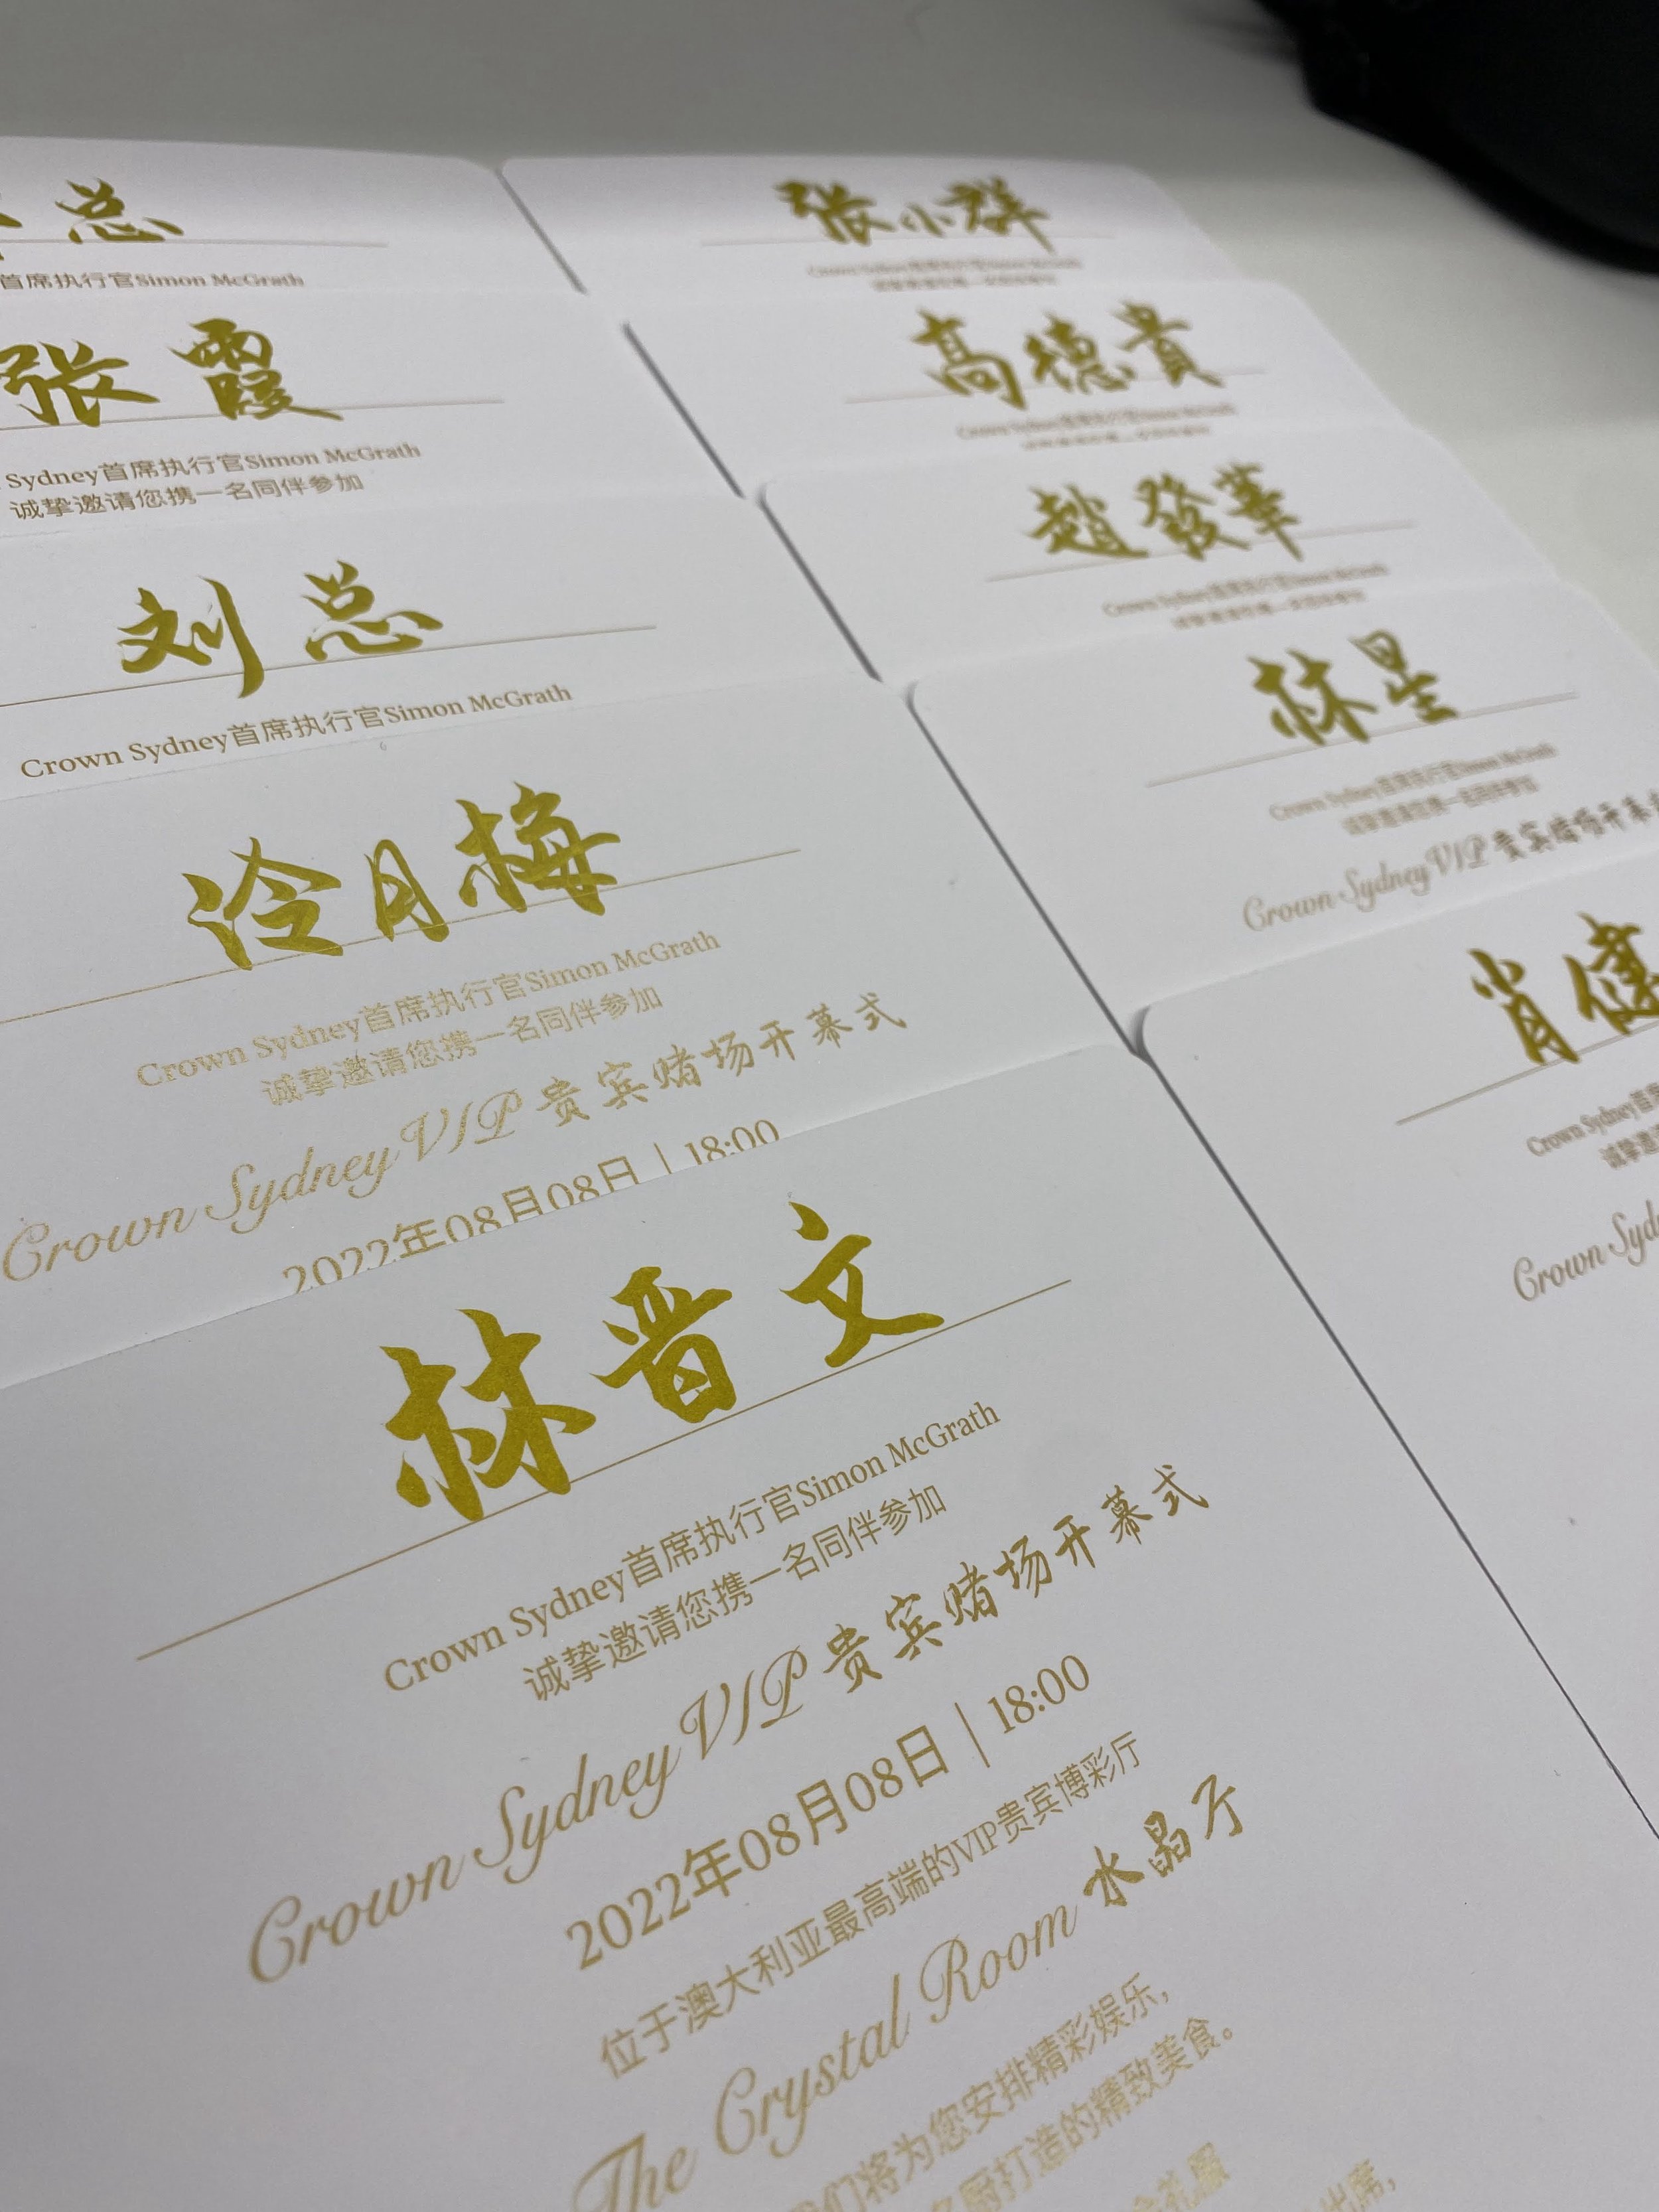 总
首席执行官Simon McGrath
张霞
Sydney首席执行官Simon McGrath
诚挚邀请您携一名同伴参加
刘总
Crown Sydney首席执行官Simon McGrath
泠月梅
Crown Sydney首席执行官Simon McGrath
诚挚邀请您携一名同伴参加
Crown Sydney VIP 贵宾赌场开幕式
2022年08月08日 | 18:00
林晋文
Crown Sydney首席执行官Simon McGrath
诚挚邀请您携一名同伴参加
Crown Sydney VIP 贵宾赌场开幕式
2022年08月08日 | 18:00
位于澳大利亚最高端的VIP贵宾博彩厅
The Crystal Room 水晶厅
们将为您安排精彩娱乐，
名厨打造的精致美食。
礼服
出席，
张小群
Crown Sydney首席执行官Simon McGrath
诚挚邀请您携一名同伴参加
高德貴
Crown Sydney首席执行官Simon McGrath
诚挚邀请您携一名同伴参加
趙發華
Crown Sydney首席执行官Simon McGrath
诚挚邀请您携一名同伴参加
林星
Crown Sydney首席执行官Simon McGrath
诚挚邀请您携一名同伴参加
Crown Sydney VIP 贵宾赌场开幕
肖健
Crown Sydney首席
诚挚邀
Crown Syd